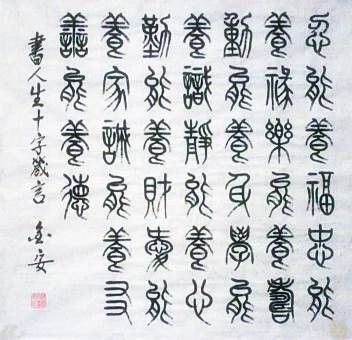 忍能養福忠能
養祿樂能養壽
動能養身學能
養識靜能養心
勤能養財愛能
養家誠能養友
善能養德
書人生十字箴言 安